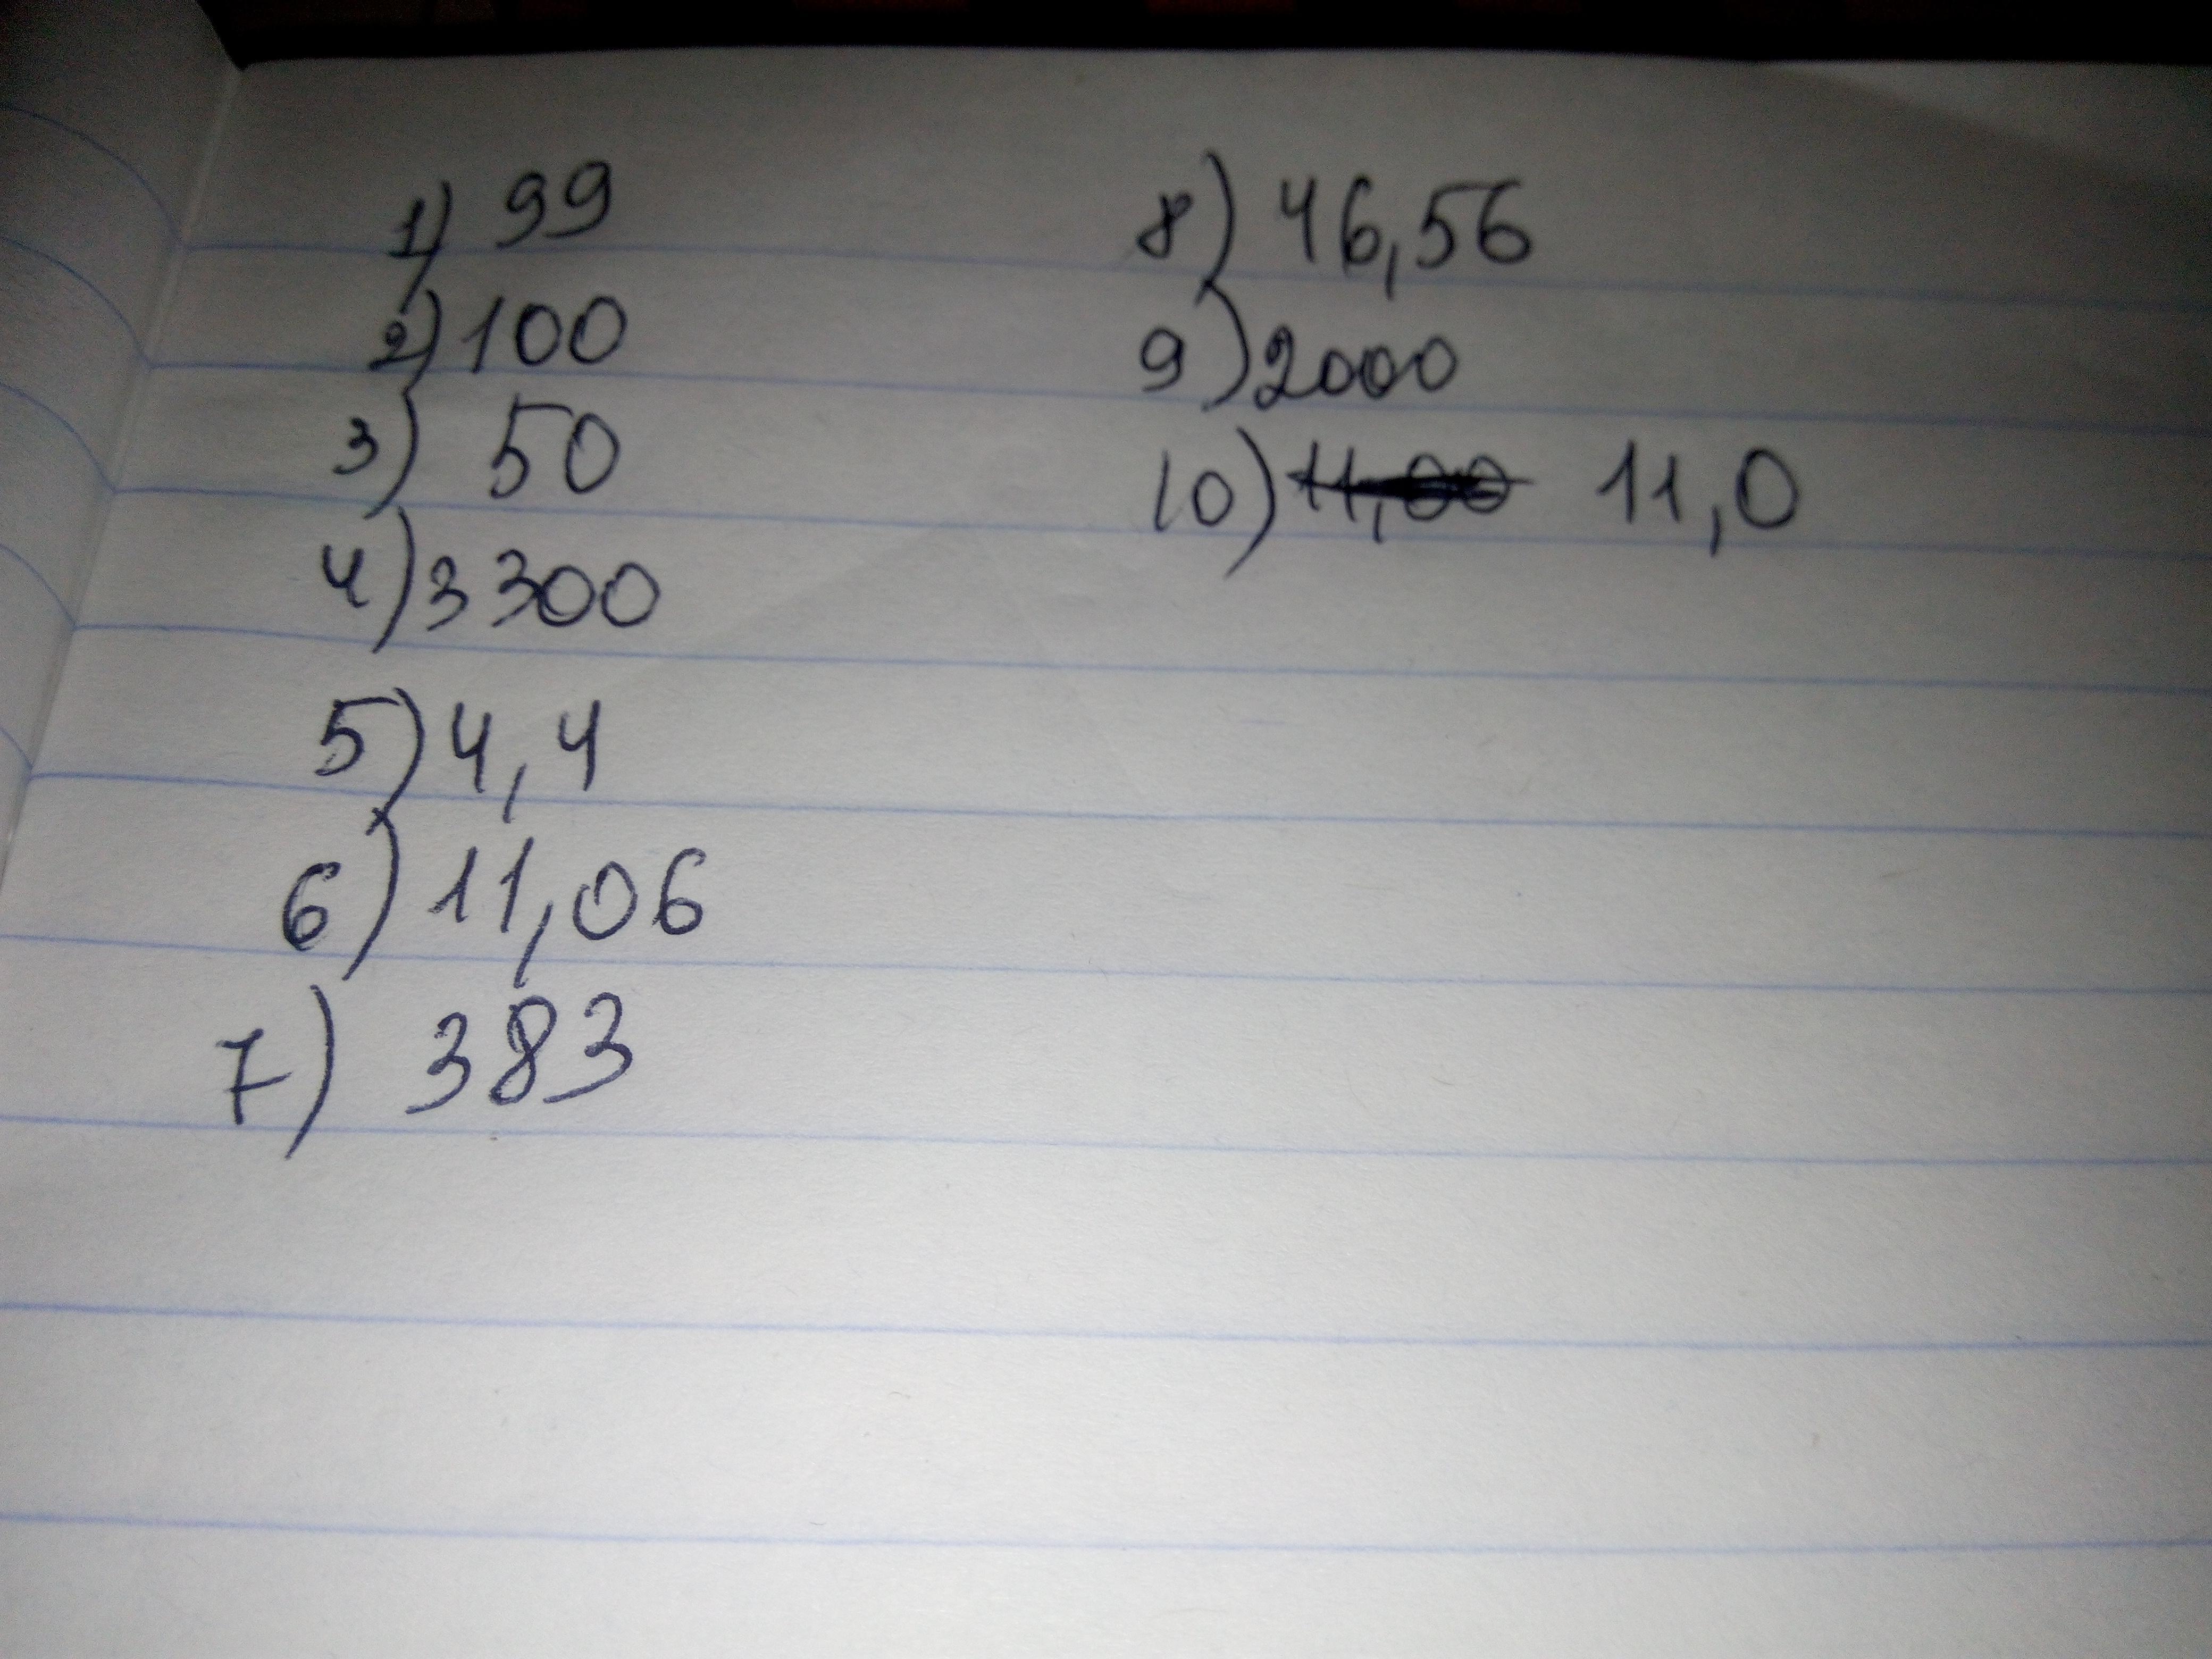 1) 99
2) 100
3) 50
4) 3300
5) 4,4
6) 11,06
7) 383
8) 46,56
9) 2000
10) 11,00 11,0